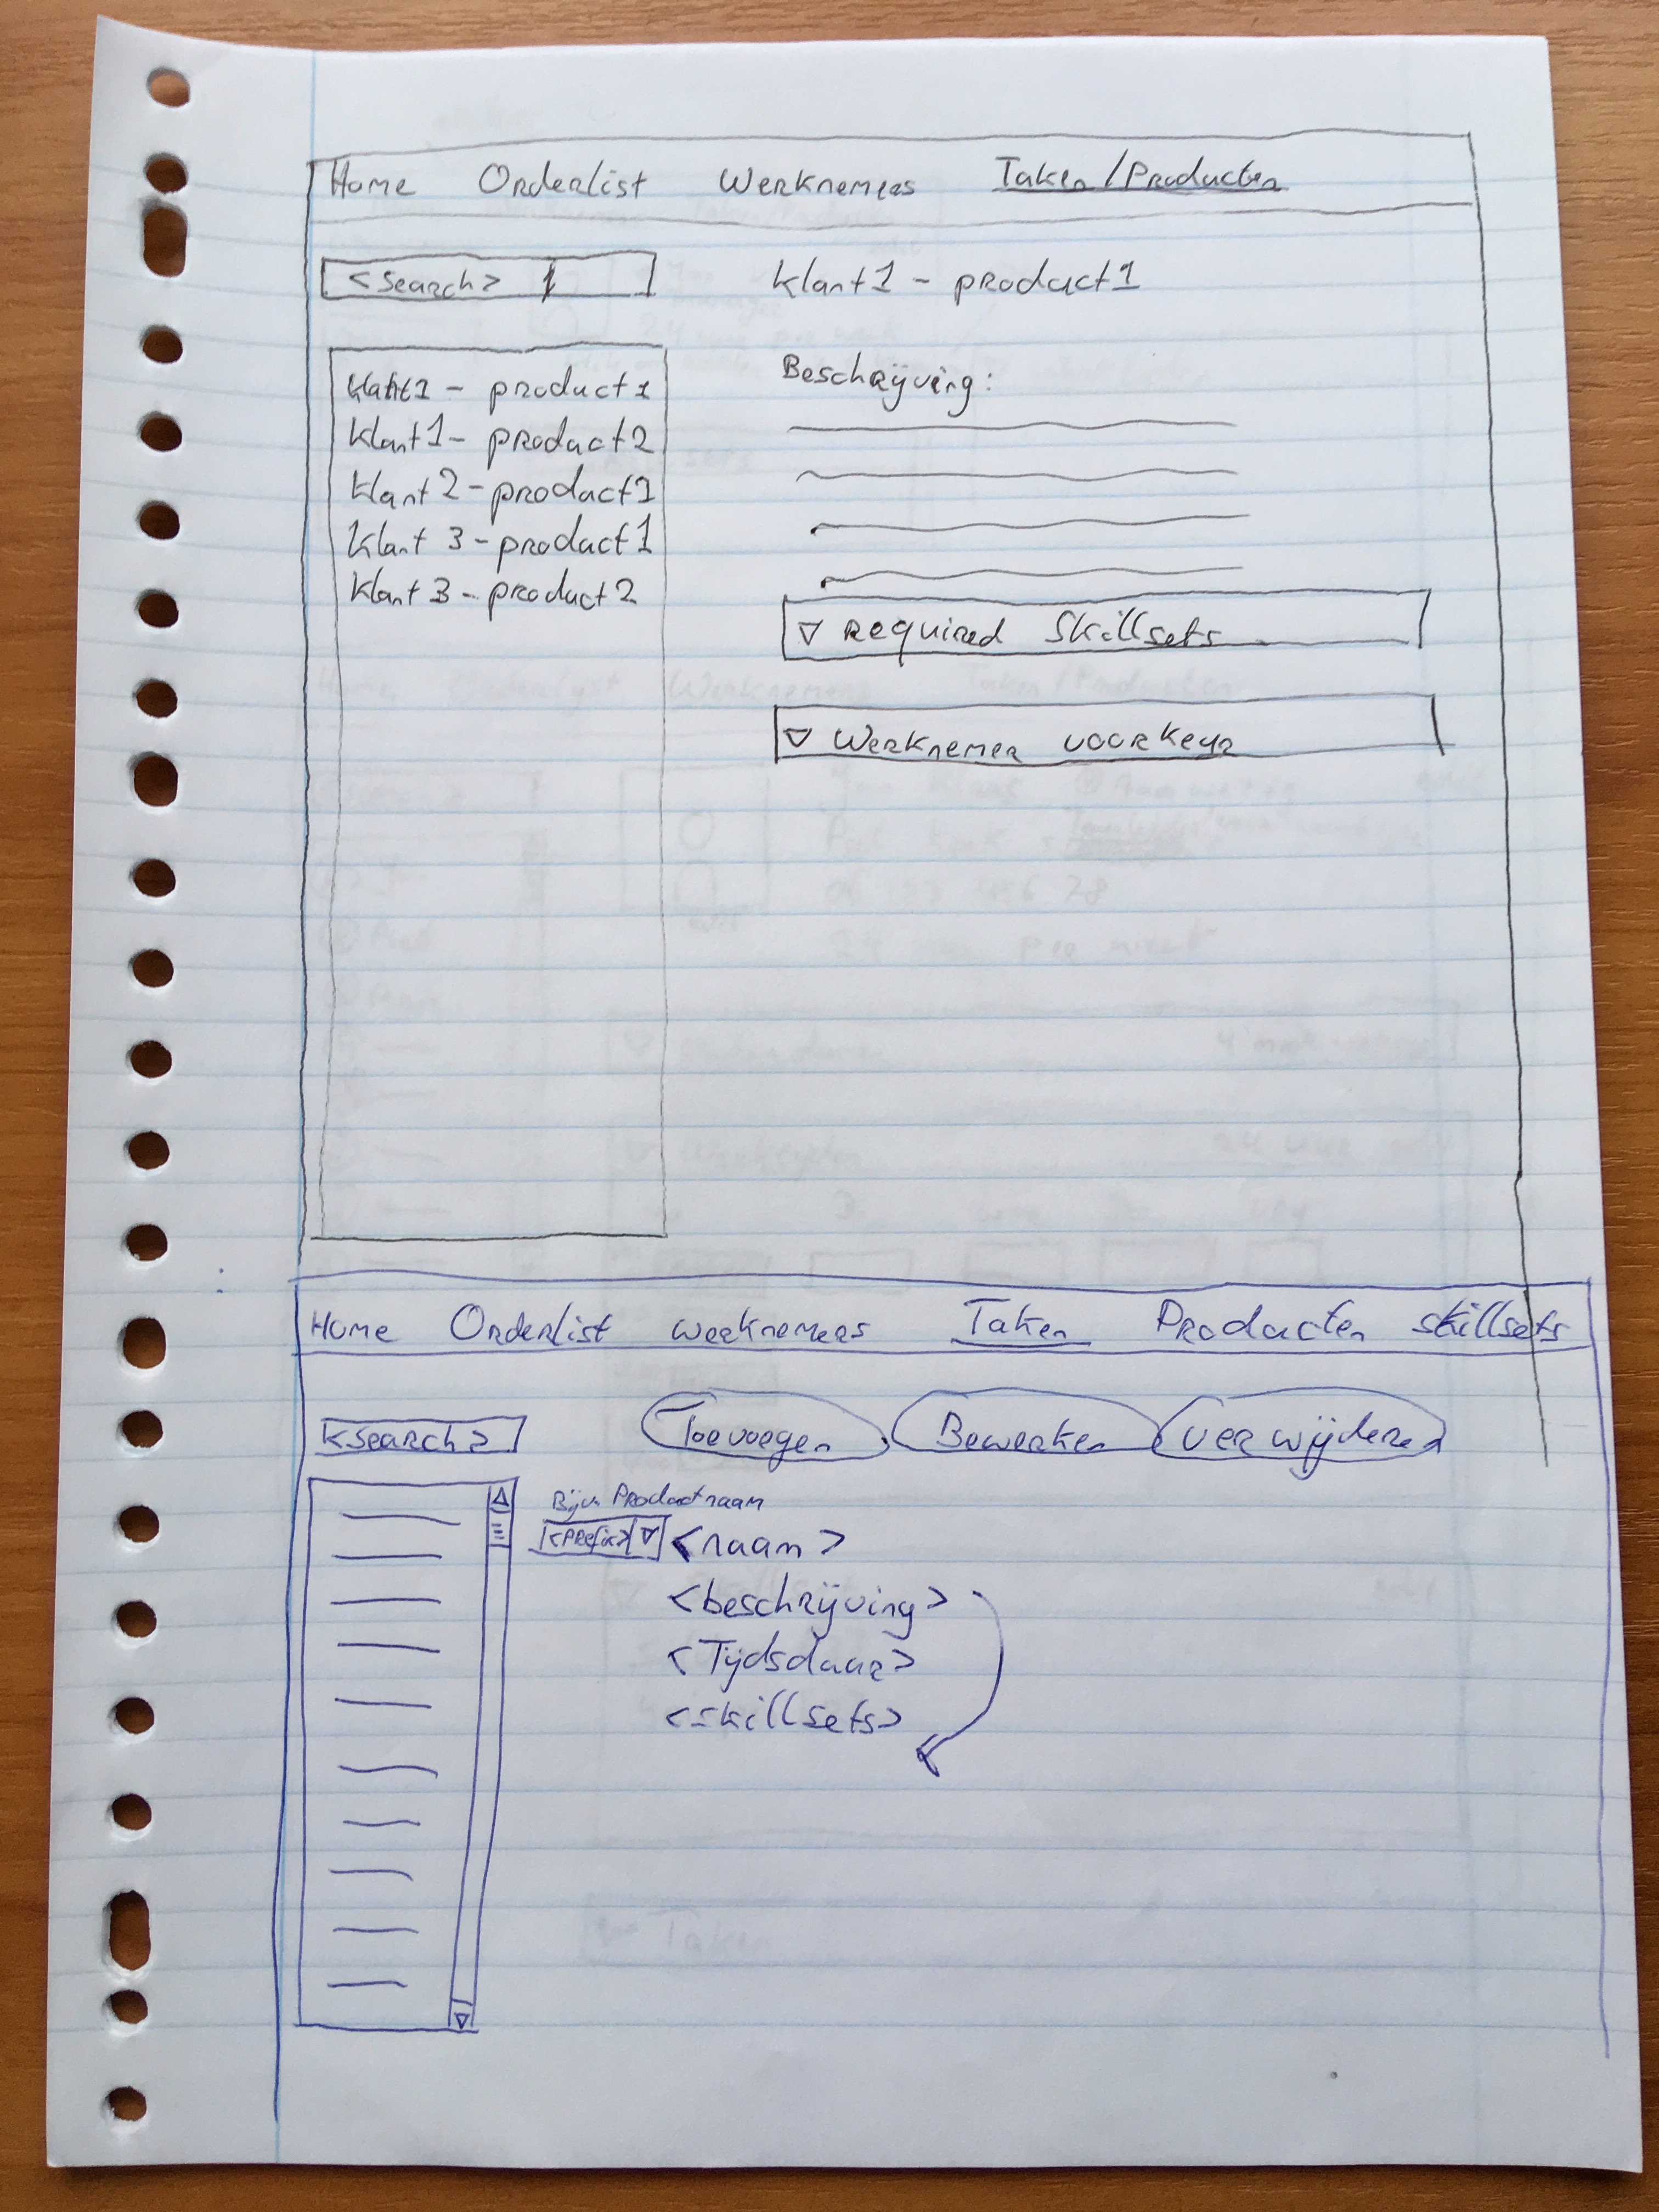 Home Orderlist Werknemers Taken/Producten
<Search>
klant1 - product1
klant1 - product1
klant1 - product2
klant 2 - product1
klant 3 - product1
klant 3 - product2
Beschrijving:
▽ required Skillsets
▽ Werknemer voorkeur
Home Orderlist werknemers Taken Producten skillsets
<Search>
Toevoegen Bewerken verwijderen
Bijv. Productnaam
<prefix> ▽ <naam>
<beschrijving>
<Tijdsduur>
<skillsets>